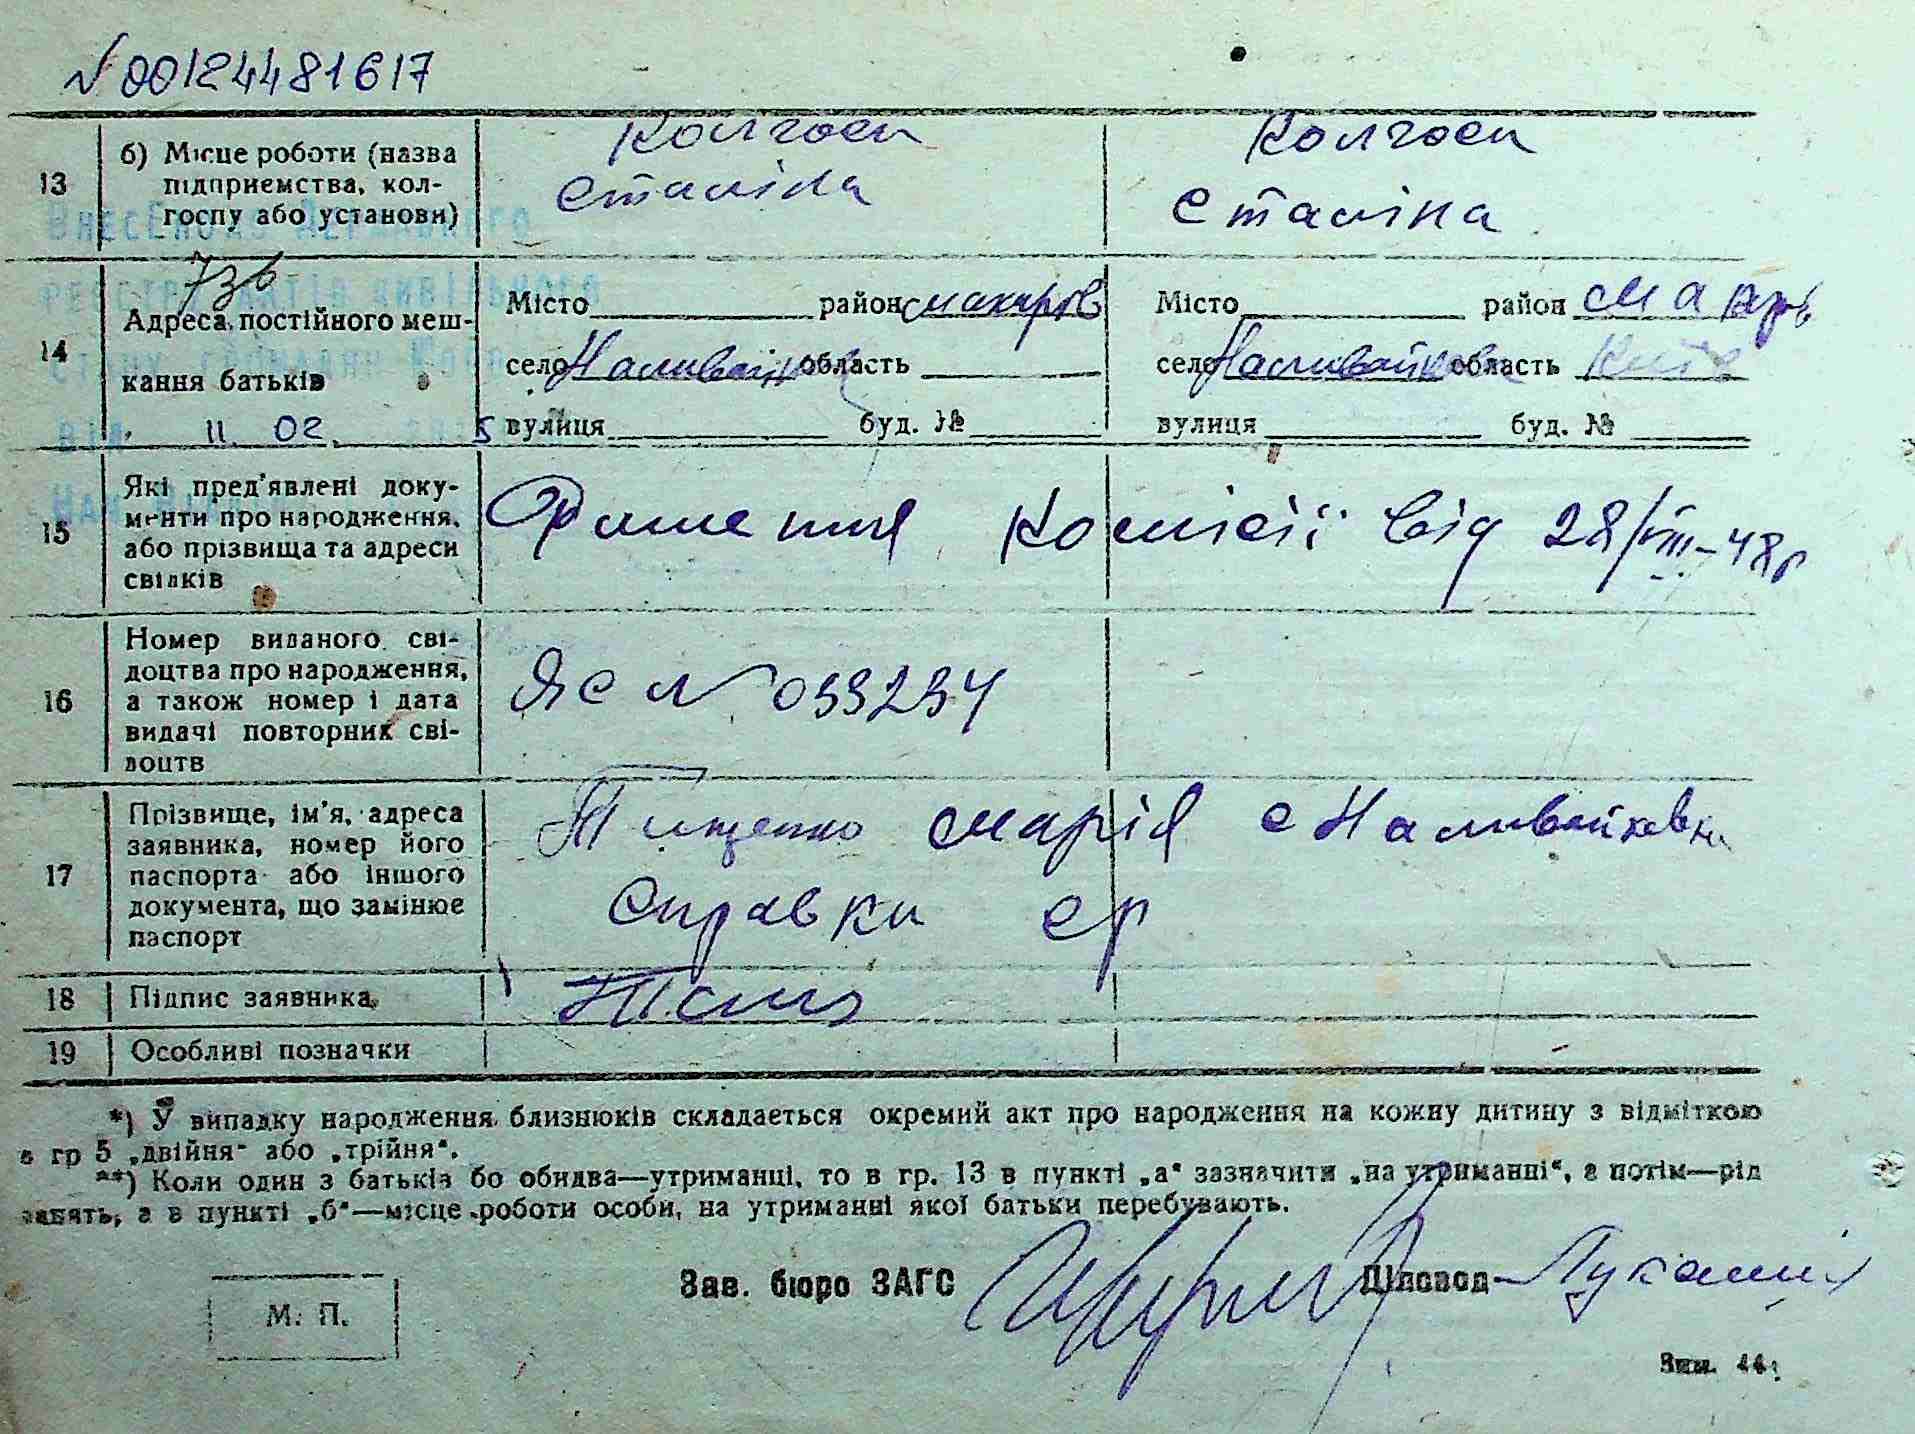 N 00124481617
13 б) Місце роботи (назва підприємства, колгоспу або установи)
Колгосп Сталіна
Колгосп Сталіна
Внесено до Державного
реєстру актів цивільного
стану громадян
від 11. 02.
7зв
14 Адреса постійного мешкання батьків
Місто район Макарів
село Наливайків область
вулиця буд. №
Місто район Макарів
село Наливайків область Київ
вулиця буд. №
15 Які пред'явлені документи про народження, або прізвища та адреси свідків
Комісії від 28/VIII-48р
16 Номер виданого свідоцтва про народження, а також номер і дата видачі повторних свідоцтв
ЯС N 033234
17 Прізвище, ім'я, адреса заявника, номер його паспорта або іншого документа, що замінює паспорт
Тищенко Марія с Наливайківка
Справки ср
18 Підпис заявника
19 Особливі позначки
*) У випадку народження близнюків складається окремий акт про народження на кожну дитину з відміткою
в гр 5 „двійня" або „трійня".
**) Коли один з батьків бо обидва—утриманці, то в гр. 13 в пункті „а" зазначити „на утриманні", а потім—рід
занять, а в пункті „б"—місце роботи особи, на утриманні якої батьки перебувають.
Зав. бюро ЗАГС
Діловод
М. П.
Зим. 44